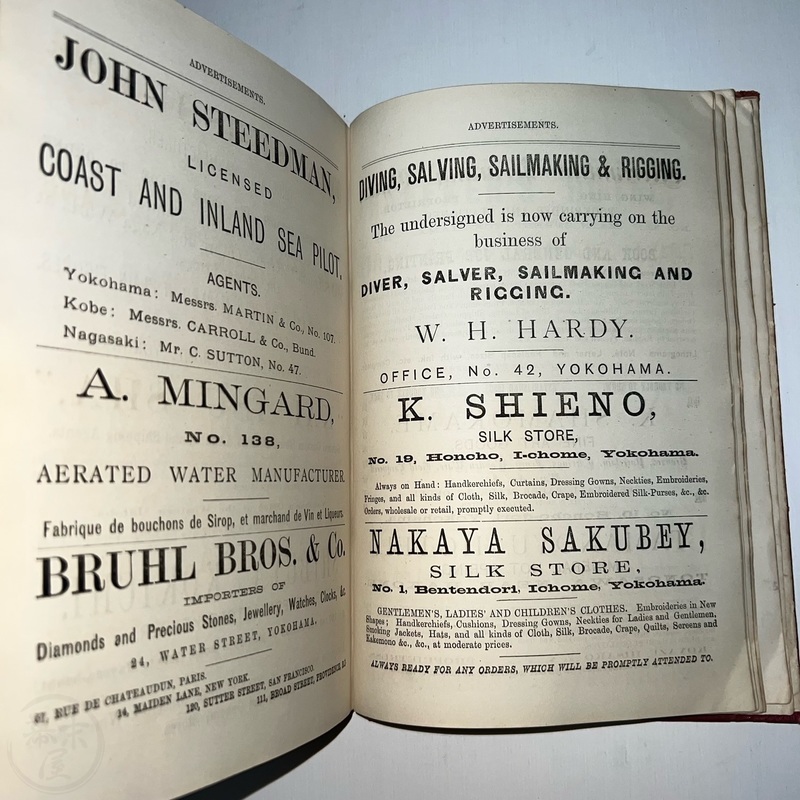 ADVERTISEMENTS.
JOHN STEEDMAN,
LICENSED
COAST AND INLAND SEA PILOT,
AGENTS.
Yokohama: Messrs. MARTIN & Co., No. 107.
Kobe: Messrs. CARROLL & Co., Bund.
Nagasaki: Mr. C. SUTTON, No. 47.
A. MINGARD,
No. 138,
AERATED WATER MANUFACTURER.
Fabrique de bouchons de Sirop, et marchand de Vin et Liqueurs.
BRUHL BROS. & Co.
IMPORTERS OF
Diamonds and Precious Stones, Jewellery, Watches, Clocks, &c.
24, WATER STREET, YOKOHAMA.
57, RUE DE CHATEAUDUN, PARIS.
14, MAIDEN LANE, NEW YORK.
120, SUTTER STREET, SAN FRANCISCO.
111, BROAD STREET, PROVIDENCE, R.I
ADVERTISEMENTS.
DIVING, SALVING, SAILMAKING & RIGGING.
The undersigned is now carrying on the
business of
DIVER, SALVER, SAILMAKING AND
RIGGING.
W. H. HARDY.
OFFICE, No. 42, YOKOHAMA.
K. SHIENO,
SILK STORE,
No. 19, Honcho, I-chome, Yokohama.
Always on Hand: Handkerchiefs, Curtains, Dressing Gowns, Neckties, Embroideries,
Fringes, and all kinds of Cloth, Silk, Brocade, Crape, Embroidered Silk-Purses, &c., &c.
Orders, wholesale or retail, promptly executed.
NAKAYA SAKUBEY,
SILK STORE,
No. 1, Bentendori, Ichome, Yokohama.
GENTLEMEN'S, LADIES' AND CHILDREN'S CLOTHES. Embroideries in New
Shapes; Handkerchiefs, Cushions, Dressing Gowns, Neckties for Ladies and Gentlemen,
Smoking Jackets, Hats, and all kinds of Cloth, Silk, Brocade, Crape, Quilts, Screens and
Kakemono &c., &c., at moderate prices.
ALWAYS READY FOR ANY ORDERS, WHICH WILL BE PROMPTLY ATTENDED TO.